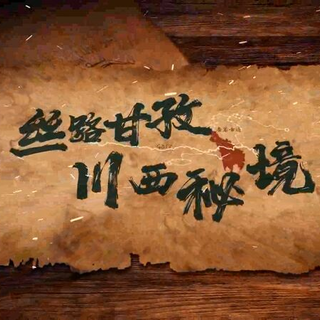 丝路甘孜
川西秘境